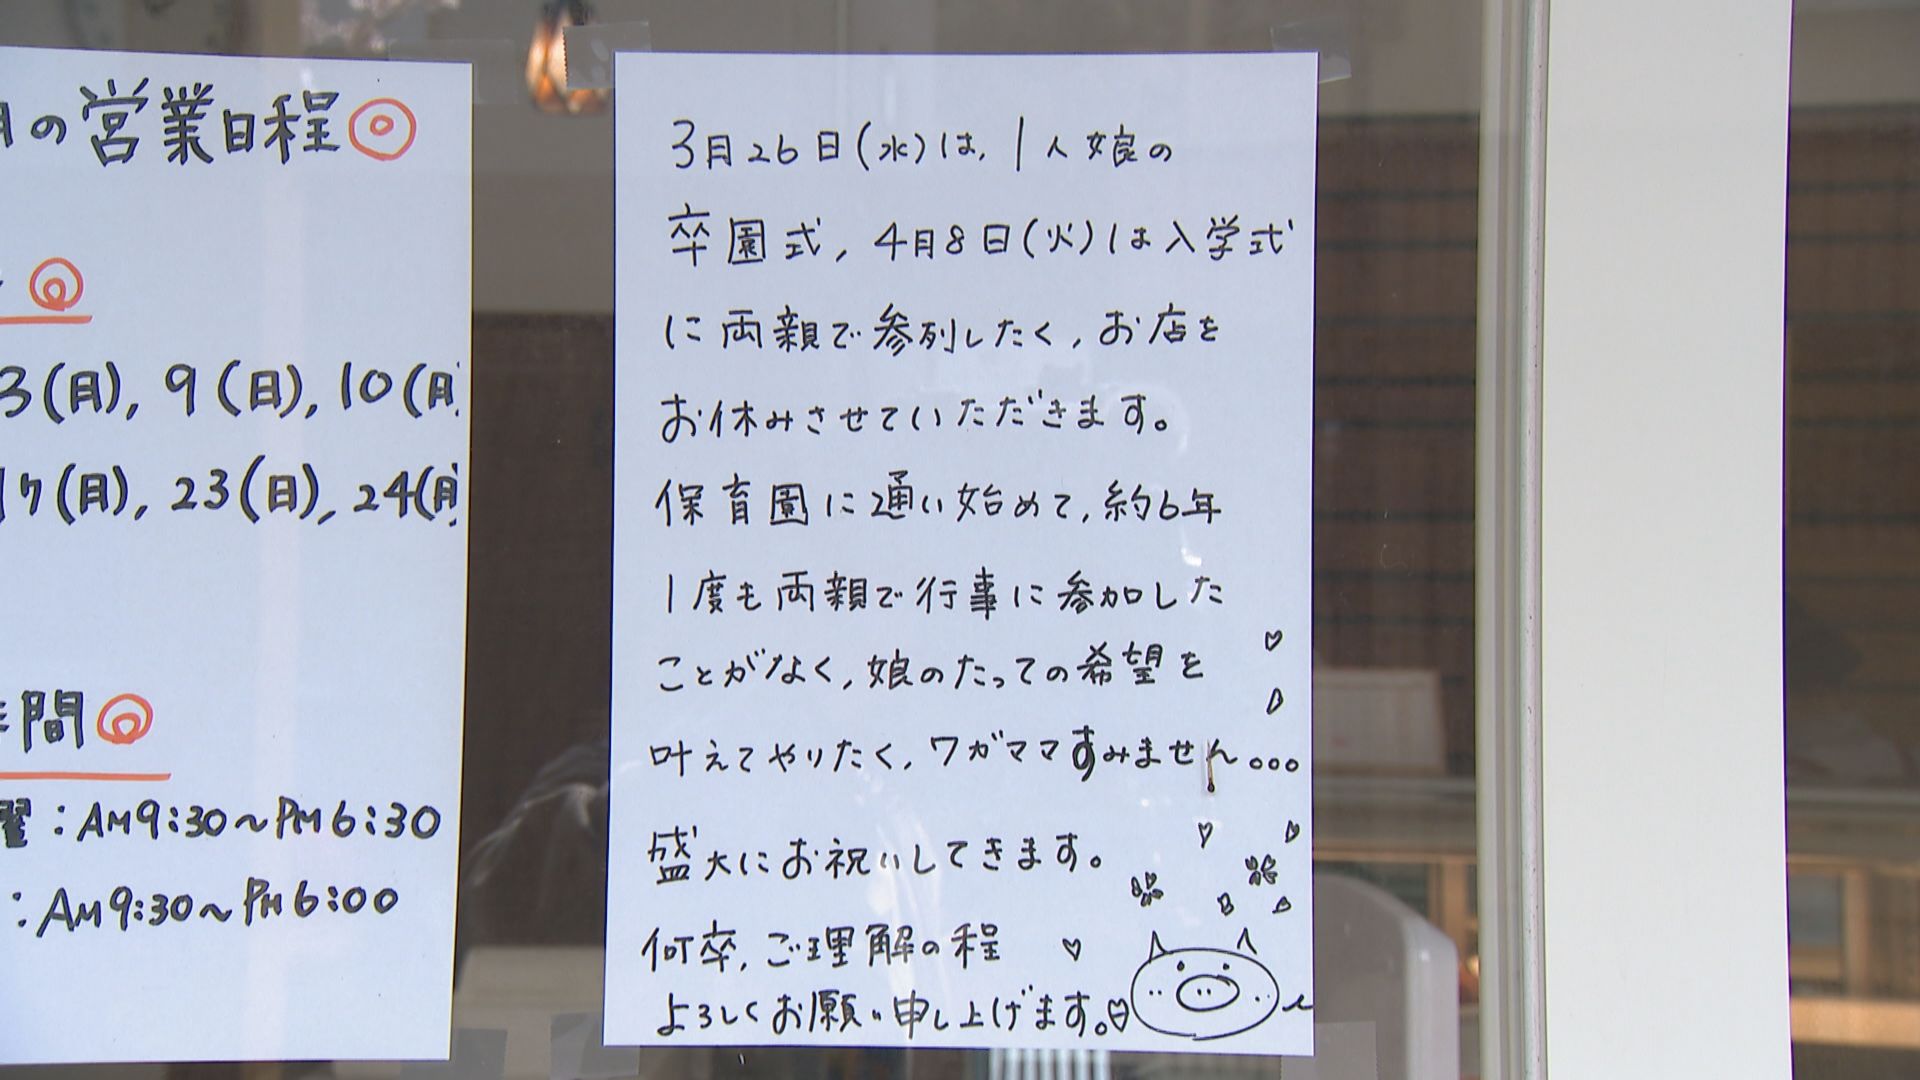 の営業日程
3(月), 9(日), 10(月)
17(月), 23(日), 24(月)
間
曜：AM9:30〜PM6:30
：AM9:30〜PM6:00
3月26日(水)は、1人娘の
卒園式、4月8日(火)は入学式
に両親で参列したく、お店を
お休みさせていただきます。
保育園に通い始めて、約6年
1度も両親で行事に参加した
ことがなく、娘のたっての希望を
叶えてやりたく、ワガママすみません。。。
盛大にお祝いしてきます。
何卒、ご理解の程
よろしくお願い申し上げます。